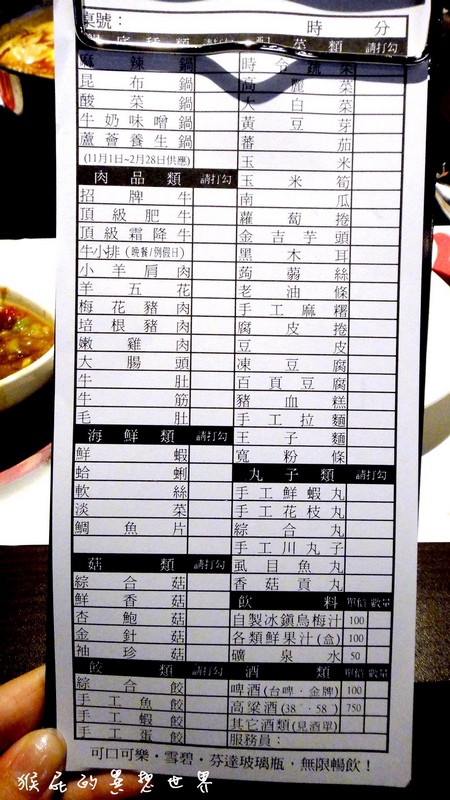 桌號： 時 分
鍋底種類 請打勾
麻辣鍋
昆布鍋
酸菜鍋
牛奶味噌鍋
蘆薈養生鍋
(11月1日~2月28日供應)
肉品類 請打勾
招牌牛
頂級肥牛
頂級霜降牛
牛小排(晚餐/例假日)
小羊肩肉
羊五花
梅花豬肉
培根豬肉
嫩雞肉
大腸頭
牛肚
牛筋
毛肚
海鮮類 請打勾
鮮蝦
蛤蜊
軟絲
淡菜
鯛魚片
菇類 請打勾
綜合菇
鮮香菇
杏鮑菇
金針菇
袖珍菇
餃類 請打勾
綜合餃
手工魚餃
手工蝦餃
手工蛋餃
配菜類 請打勾
時令蔬菜
高麗菜
大白菜
黃豆芽
蕃茄
玉米
玉米筍
南瓜
蘿蔔捲
金吉芋頭
黑木耳
蒟蒻絲
老油條
手工麻糬
腐皮捲
豆皮
凍豆腐
百頁豆腐
豬血糕
手工拉麵
王子麵
寬粉條
丸子類 請打勾
手工鮮蝦丸
手工花枝丸
綜合丸
手工川丸子
虱目魚丸
香菇貢丸
飲料 單價 數量
自製冰鎮烏梅汁 100
各類鮮果汁(盒) 100
礦泉水 50
酒類
啤酒(台啤．金牌) 100
高粱酒(38°．58°) 750
其它酒類(見酒單)
服務員：
可口可樂．雪碧．芬達玻璃瓶，無限暢飲！
猴屁的異想世界